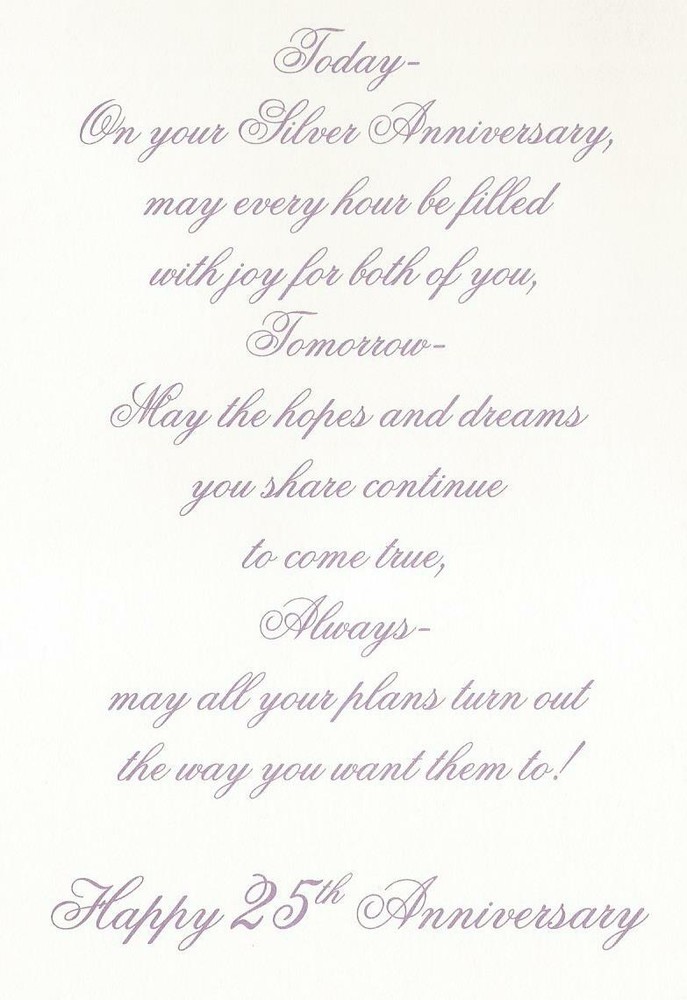 Today-
On your Silver Anniversary,
may every hour be filled
with joy for both of you,
Tomorrow-
May the hopes and dreams
you share continue
to come true,
Always-
may all your plans turn out
the way you want them to!
Happy 25th Anniversary